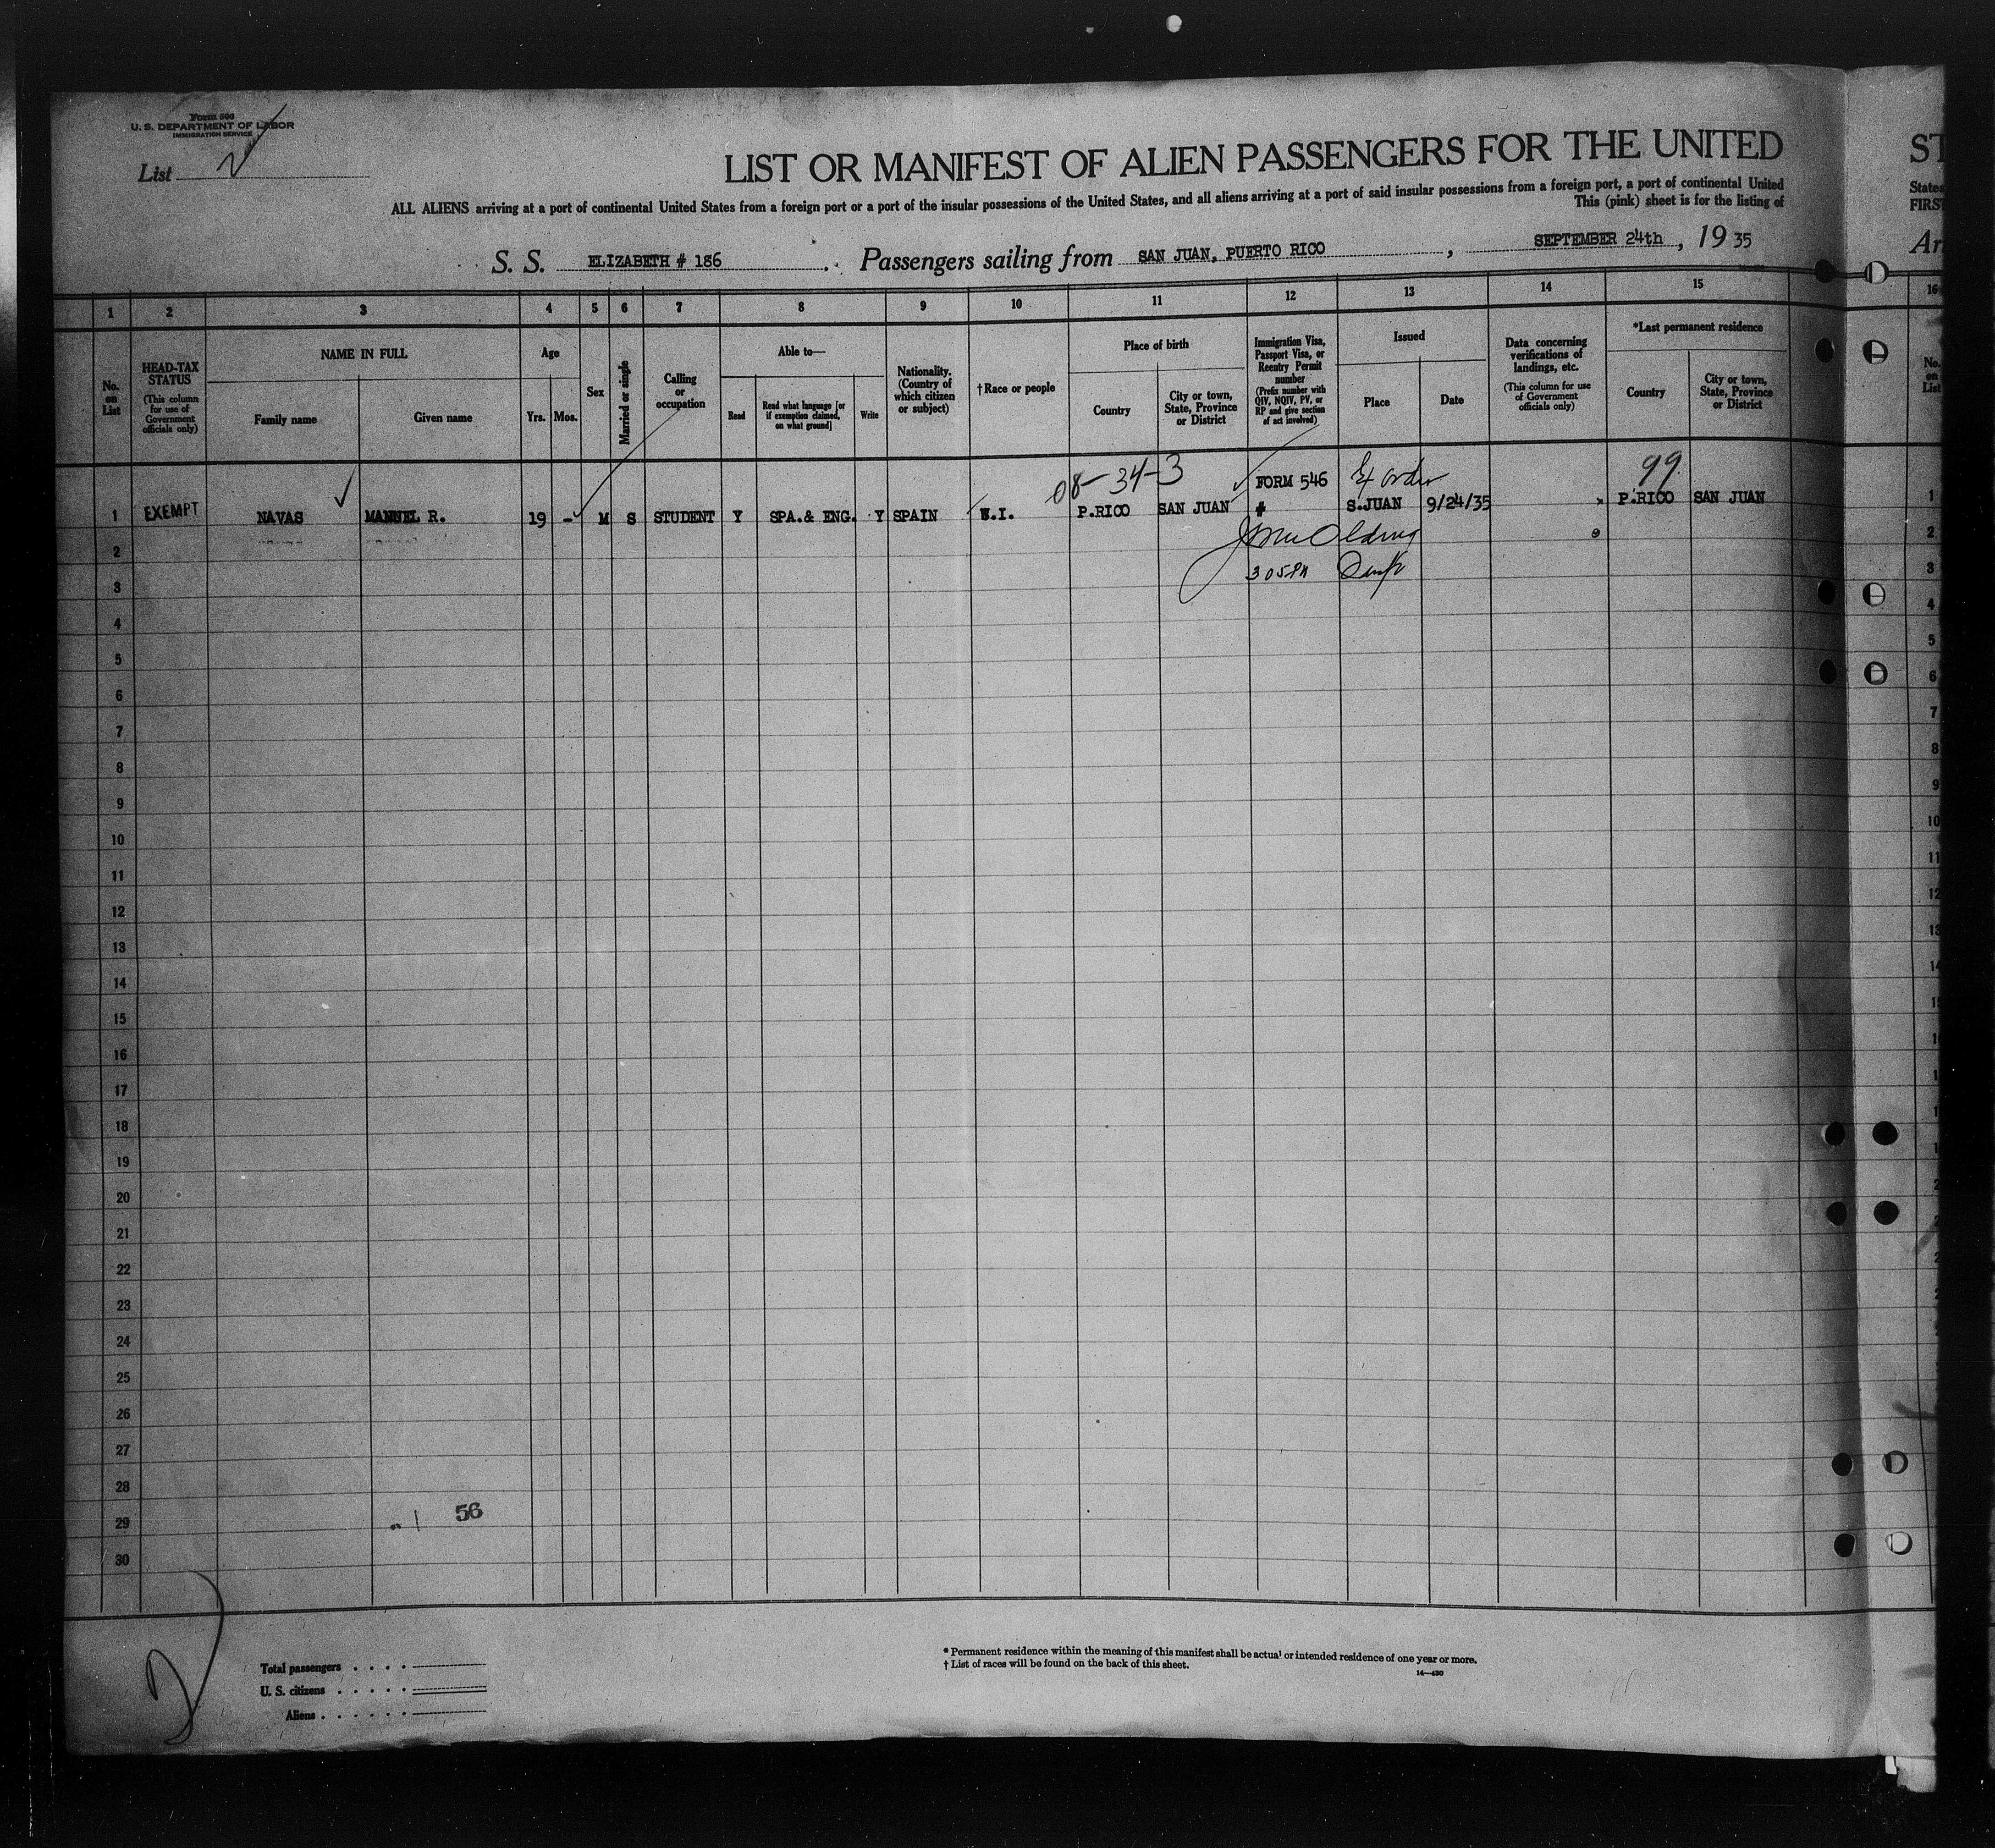 Form 500
U. S. DEPARTMENT OF LABOR
IMMIGRATION SERVICE
List
LIST OR MANIFEST OF ALIEN PASSENGERS FOR THE UNITED
ST
ALL ALIENS arriving at a port of continental United States from a foreign port or a port of the insular possessions of the United States, and all aliens arriving at a port of said insular possessions from a foreign port, a port of continental United
States
This (pink) sheet is for the listing of
FIRST
S. S. ELIZABETH # 186 Passengers sailing from SAN JUAN, PUERTO RICO, SEPTEMBER 24th, 19 35
Ar
1 2 3 4 5 6 7 8 9 10 11 12 13 14 15 16
No. on List
HEAD-TAX STATUS (This column for use of Government officials only)
NAME IN FULL
Family name Given name
Age
Yrs. Mos.
Sex
Married or single
Calling or occupation
Able to—
Read Read what language [or if exemption claimed, on what ground] Write
Nationality. (Country of which citizen or subject)
†Race or people
Place of birth
Country City or town, State, Province or District
Immigration Visa, Passport Visa, or Reentry Permit number (Prefix number with QIV, NQIV, PV, or RP and give section of act involved)
Issued
Place Date
Data concerning verifications of landings, etc. (This column for use of Government officials only)
*Last permanent residence
Country City or town, State, Province or District
No. on List
08-34-3 99
FORM 546
1 EXEMPT NAVAS MANUEL R. 19 - M S STUDENT Y SPA.& ENG. Y SPAIN W.I. P.RICO SAN JUAN # S.JUAN 9/24/35 x P.RICO SAN JUAN 1
2 2
3 305PM 3
4 4
5 5
6 6
7 7
8 8
9 9
10 10
11 11
12 12
13 13
14 14
15
16
17
18
19
20
21
22
23
24
25
26
27
28
29 56
30
Total passengers
U. S. citizens
Aliens
* Permanent residence within the meaning of this manifest shall be actual or intended residence of one year or more.
† List of races will be found on the back of this sheet.
14—430